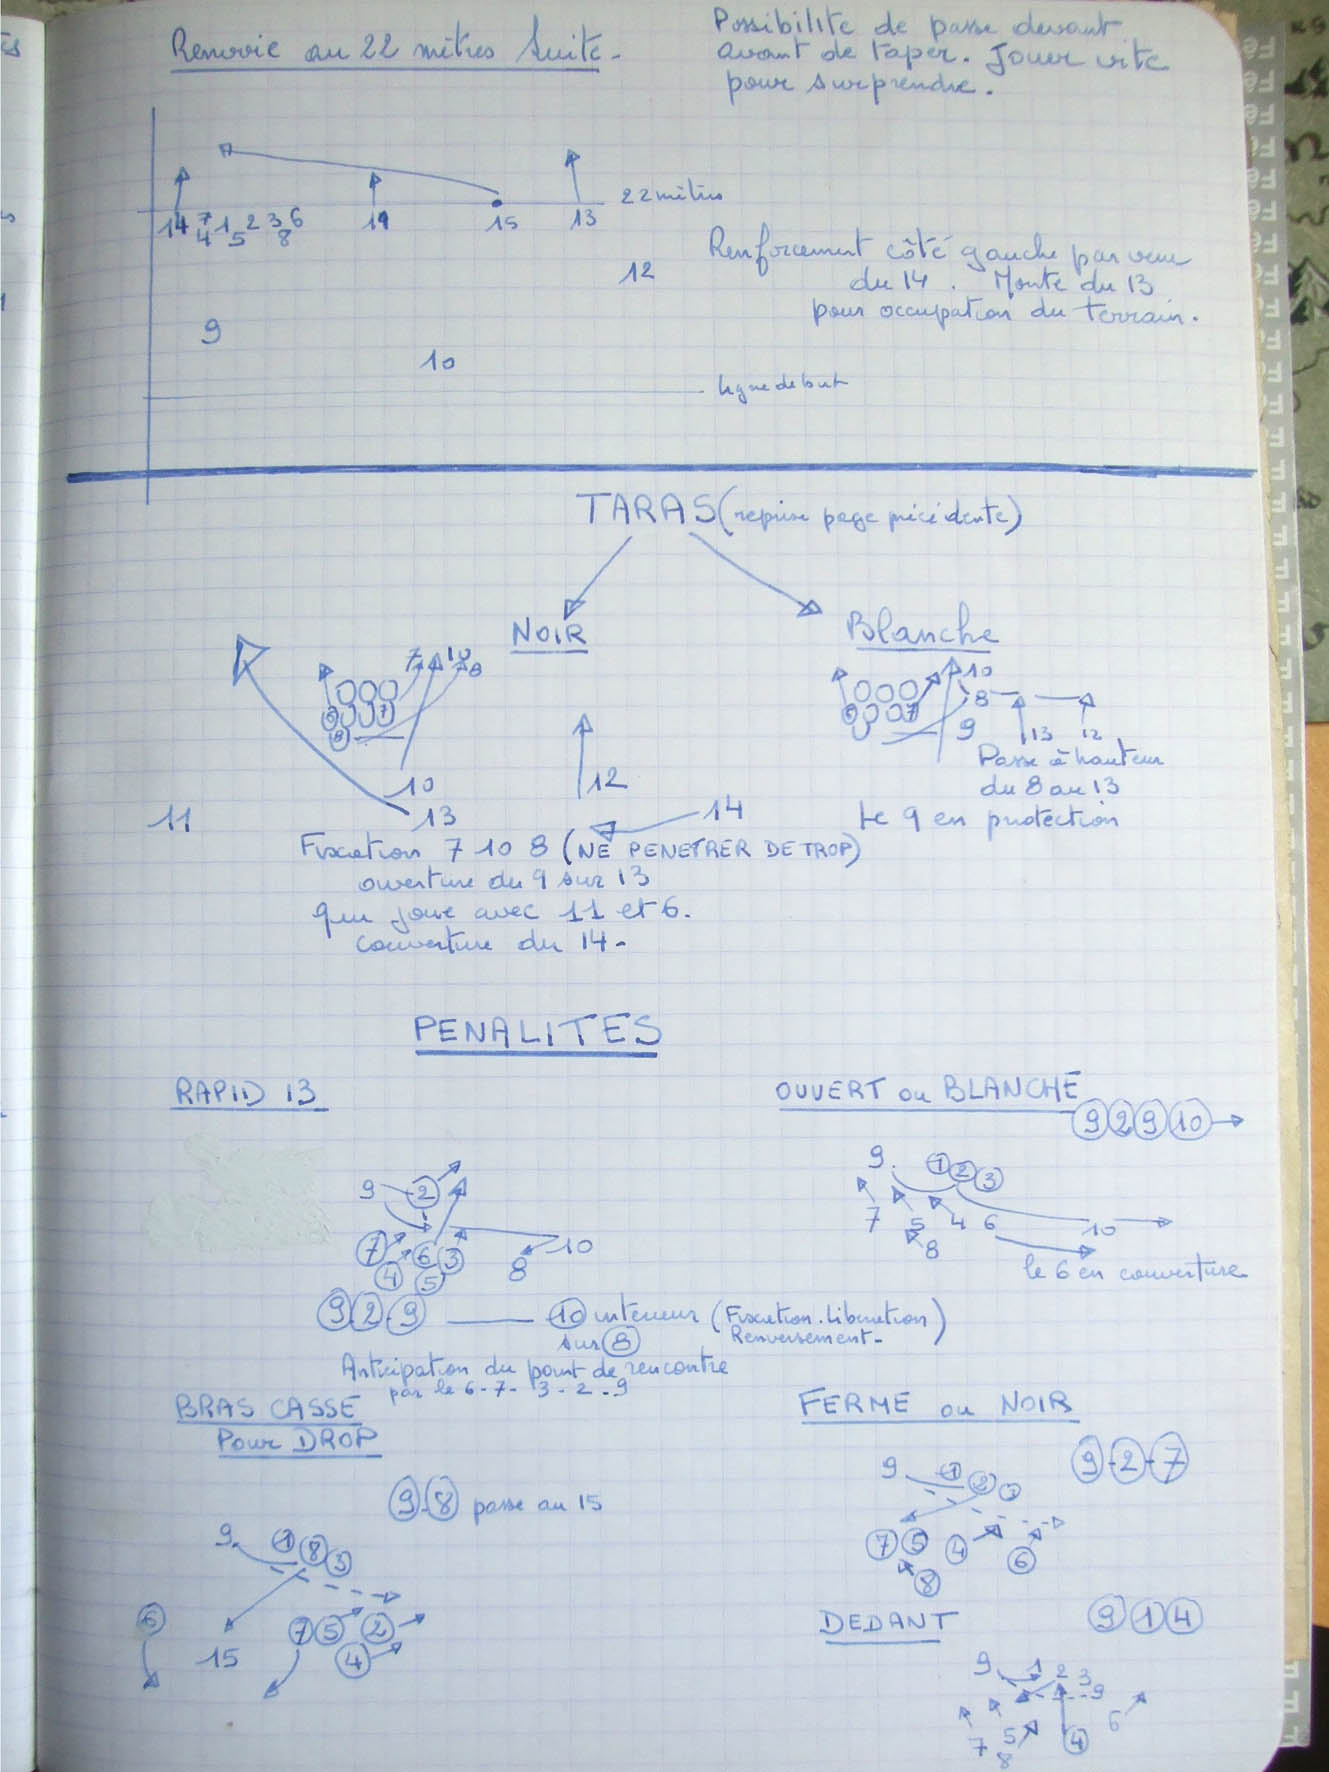 Renvoie au 22 mètres Suite -
Possibilité de passe devant
avant de taper. Jouer vite
pour surprendre.
22 mètres
14 7 1 2 3 6
4 5 8
15
13
12
Renforcement côté gauche par venue
du 14. Monté du 13
pour occupation du terrain.
9
10
ligne de but
TARAS (reprise page précédente)
NOIR
Blanche
7 10 8
7
8
10
13
11
12
14
10
8
9
7
13 12
Passe à hauteur
du 8 au 13
Le 9 en protection
Fixation 7 10 8 (NE PENETRER DE TROP)
ouverture du 9 sur 13
qui joue avec 11 et 6.
couverture du 14 -
PENALITES
RAPID 13
OUVERT ou BLANCHE
9 2 9 10
9 2
7 6 3
4 5
8
10
9 1 2 3
7 5 4 6 10
8
le 6 en couverture
9 - 2 - 9 10 intérieur (Fixation. Libération
sur 8 Renversement -)
Anticipation du point de rencontre
par le 6 - 7 - 3 - 2 - 9
BRAS CASSE
Pour DROP
FERME ou NOIR
9 - 2 - 7
9 - 8 passe au 15
9 1 8 3
6
15
7 5 2
4
9 1 2 3
7 5 4 6
8
DEDANT
9 1 4
9 1 2 3
9
7 5 8 4 6